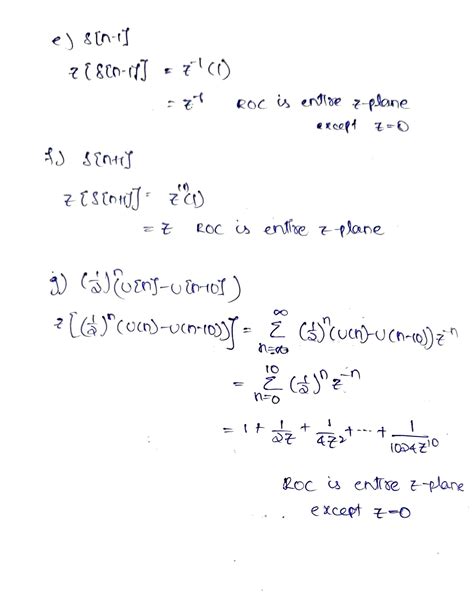 e) δ[n-1]
Z{δ[n-1]} = z⁻¹(1)
= z⁻¹ ROC is entire z-plane
except z=0
f) δ[n+1]
Z{δ[n+1]} = z⁽¹⁾(1)
= z ROC is entire z-plane
g) (1/2)ⁿ(u[n]-u[n-10])
Z[(1/2)ⁿ(u(n)-u(n-10))] = ∑_{n=-∞}^{∞} (1/2)ⁿ(u(n)-u(n-10))z⁻ⁿ
= ∑_{n=0}^{10} (1/2)ⁿ z⁻ⁿ
= 1 + 1/2z + 1/4z² + ... + 1/1024z¹⁰
ROC is entire z-plane
except z=0